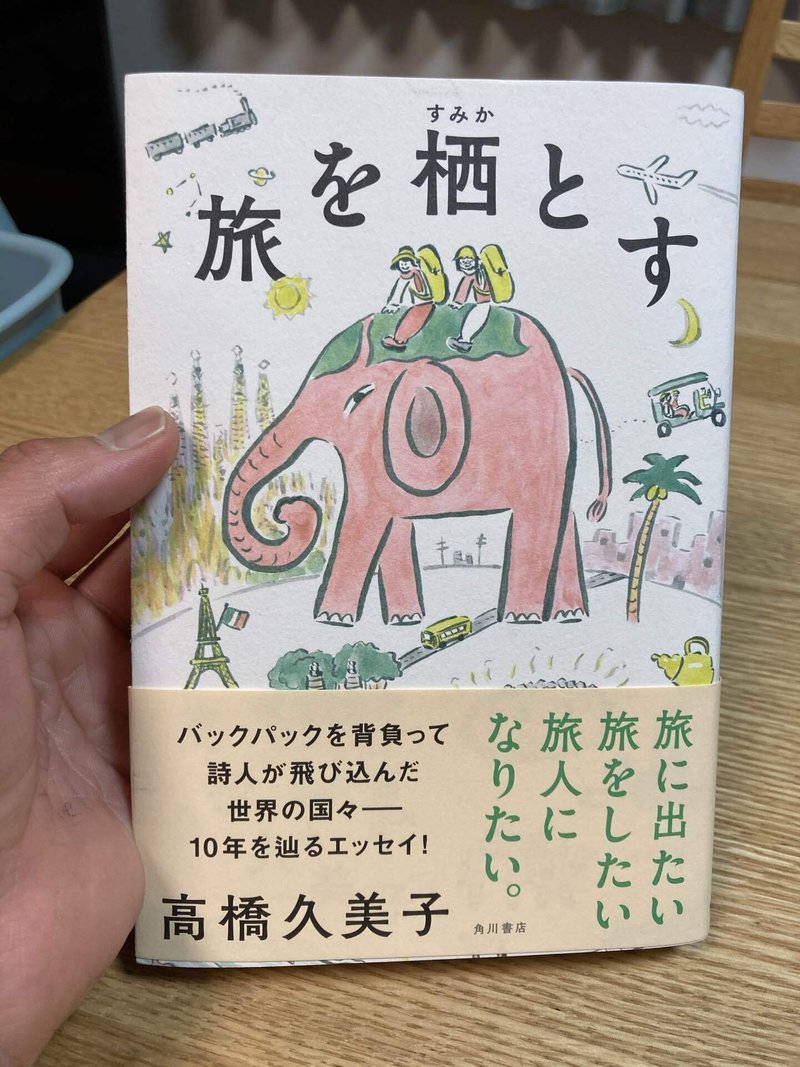 すみか
旅を栖とす
バックパックを背負って
詩人が飛び込んだ
世界の国々──
10年を辿るエッセイ!
高橋久美子
旅に出たい
旅をしたい
旅人に
なりたい。
角川書店